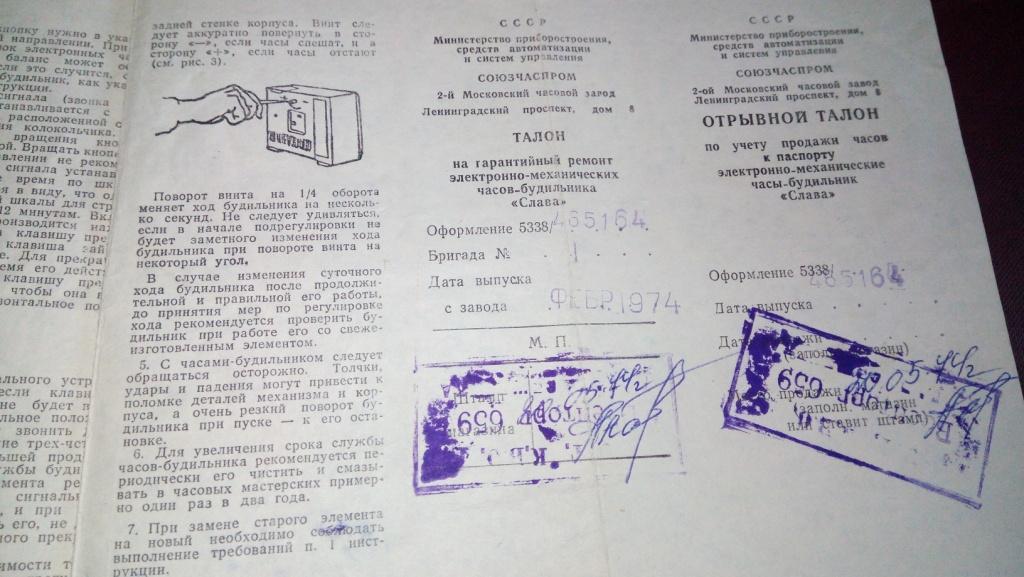 кнопку нужно в ука
направлении. При
электронных ча
баланс может о
если это случится, с
будильник, как ука
рукции.
сигнала (звонка
танавливается с
расположенной с
ния колокольчика.
вращения кно
ой. Вращать кнопк
влении не реком
сигнала устанав
время по шк
в виду, что о
шкалы для стр
12 минутам. Вкл
роизводится на
клавишу пре
клавиша зай
е. Для прекра
емя его дейст
клавишу пре
чтобы она в
зонтальное по
ального устр
если клави
не будет в
альное полож
звонить
ие трех-ст
льшей прод
жбы буди
мента ре
сигналь
и при
его, не
ного прек
имости т
задней стенке корпуса. Винт сле-
дует аккуратно повернуть в сто-
рону «—», если часы спешат, и в
сторону «+», если часы отстают
(см. рис. 3).
Поворот винта на 1/4 оборота
меняет ход будильника на несколь-
ко секунд. Не следует удивляться,
если в начале подрегулировки не
будет заметного изменения хода
будильника при повороте винта на
некоторый угол.
В случае изменения суточного
хода будильника после продолжи-
тельной и правильной его работы,
до принятия мер по регулировке
хода рекомендуется проверить бу-
дильник при работе его со свеже-
изготовленным элементом.
5. С часами-будильником следует
обращаться осторожно. Толчки,
удары и падения могут привести к
поломке деталей механизма и кор-
пуса, а очень резкий поворот бу-
дильника при пуске — к его оста-
новке.
6. Для увеличения срока службы
часов-будильника рекомендуется пе-
риодически его чистить и смазы-
вать в часовых мастерских пример-
но один раз в два года.
7. При замене старого элемента
на новый необходимо соблюдать
выполнение требований п. 1 инст-
рукции.
СССР
Министерство приборостроения,
средств автоматизации
и систем управления
СОЮЗЧАСПРОМ
2-й Московский часовой завод
Ленинградский проспект, дом 8
ТАЛОН
на гарантийный ремонт
электронно-механических
часов-будильника
«Слава»
Оформление 5338/ 465164
Бригада № 1
Дата выпуска
с завода ФЕВР. 1974
М. П.
Штамп
магазина
659
СССР
Министерство приборостроения,
средств автоматизации
и систем управления
СОЮЗЧАСПРОМ
2-ой Московский часовой завод
Ленинградский проспект, дом 8
ОТРЫВНОЙ ТАЛОН
по учету продажи часов
к паспорту
электронно-механические
часы-будильник
«Слава»
Оформление 5338/ 465164
Дата выпуска
Дата продажи
(заполн. магазин)
продажи
(заполн. магазин
или ставит штамп)
659